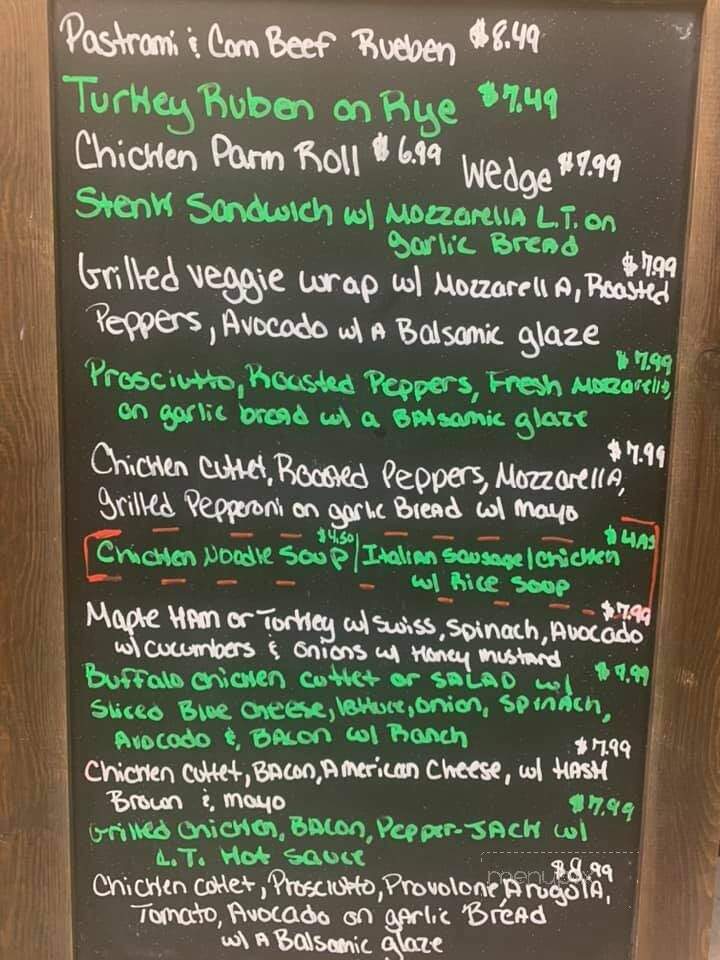 Pastrami & Corn Beef Rueben $8.49
Turkey Ruben on Rye $7.49
Chicken Parm Roll $6.99 Wedge $7.99
Steak Sandwich w/ Mozzarella L.T. on
garlic Bread
$7.99
Grilled veggie wrap w/ Mozzarella, Roasted
Peppers, Avocado w/ A Balsamic glaze
$7.99
Prosciutto, Roasted Peppers, Fresh Mozzarella,
on garlic bread w/ a Balsamic glaze
$7.99
Chicken cutlet, Roasted Peppers, Mozzarella,
grilled Pepperoni on garlic Bread w/ mayo
$4.50 $4.49
Chicken Noodle Soup | Italian Sausage/chicken
w/ Rice Soup
$7.99
Maple Ham or Turkey w/ Swiss, Spinach, Avocado
w/ Cucumbers & Onions w/ Honey mustard
$7.99
Buffalo chicken cutlet or SALAD w/
Sliced Blue Cheese, lettuce, onion, Spinach,
Avocado & Bacon w/ Ranch
$7.99
Chicken Cutlet, Bacon, American Cheese, w/ HASH
Brown & mayo
$7.99
Grilled Chicken, Bacon, Pepper-Jack w/
L.T. Hot sauce
Chicken cutlet, Prosciutto, Provolone, Arugola,
Tomato, Avocado on garlic Bread
w/ A Balsamic glaze